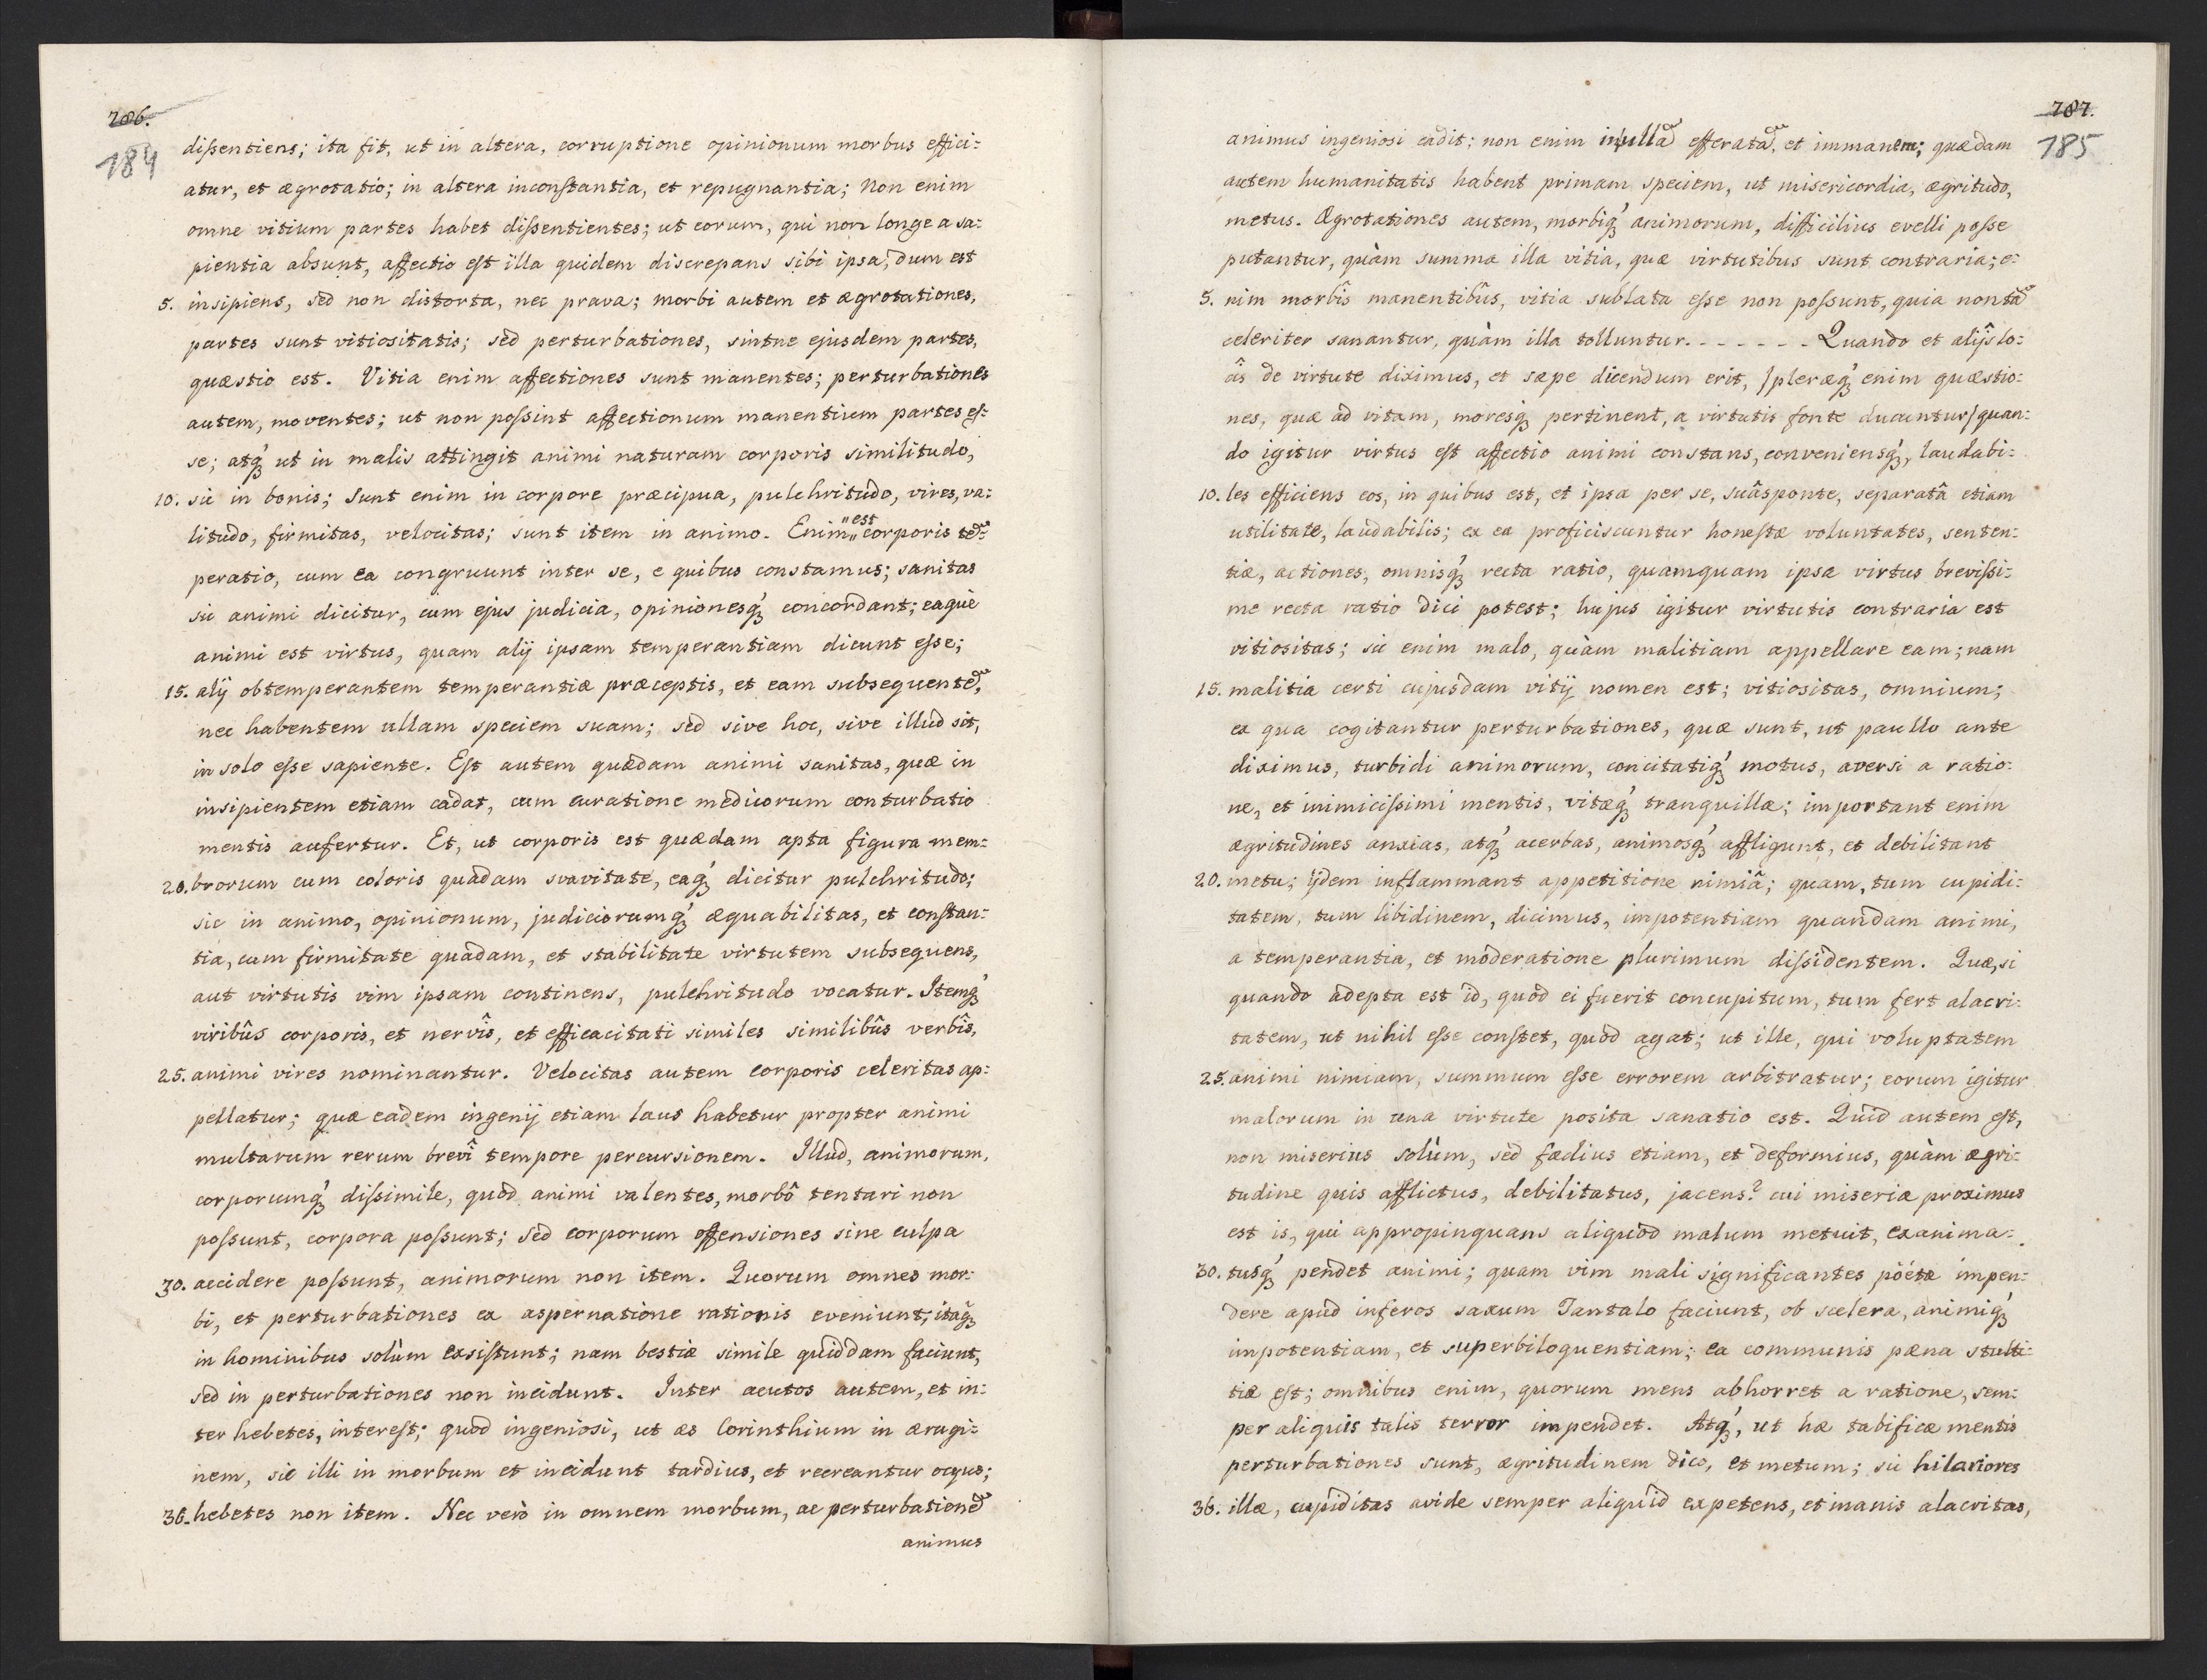 786.
184
dissentiens; ita fit, ut in altera, corruptione opinionum morbus effici:
atur, et ægrotatio; in altera inconstantia, et repugnantia; Non enim
omne vitium partes habet dissentientes; ut eorum, qui non longe a sa:
pientia absunt, affectio est illa quidem discrepans sibi ipsa, dum est
5. insipiens, sed non distorta, nec prava; morbi autem et ægrotationes,
partes sunt vitiositatis; sed perturbationes, sintne ejusdem partes,
quæstio est. Vitia enim affectiones sunt manentes; perturbationes
autem, moventes; ut non possint affectionum manentium partes es:
se; atq́ꝫ ut in malis attingit animi naturam corporis similitudo,
10. sic in bonis; Sunt enim in corpore præcipua, pulchritudo, vires, va:
litudo, firmitas, velocitas; sunt item in animo. Enim „est„ corporis tẽ:
peratio, cum ea congruunt inter se, e quibus constamus; sanitas
sic animi dicitur, cum ejus judicia, opinionesq́ꝫ concordant; eaque
animi est virtus, quam alij ipsam temperantiam dicunt esse;
15. alij obtemperantem temperantiæ præceptis, et eam subsequentẽ,
nec habentem ullam speciem suam; sed sive hoc, sive illud sit,
in solo esse sapiente. Est autem quædam animi sanitas, quæ in
insipientem etiam cadat, cum curatione medicorum conturbatio
mentis aufertur. Et, ut corporis est quædam apta figura mem:
20. brorum cum coloris quadam svavitate, eaq́ꝫ dicitur pulchritudo;
sic in animo, opinionum, judiciorumq́ꝫ æquabilitas, et constan:
tia, cum firmitate quadam, et stabilitate virtutem subsequens,
aut virtutis vim ipsam continens, pulchritudo vocatur. Itemq́ꝫ
viribûs corporis, et nervîs, et efficacitati similes similibûs verbîs,
25. animi vires nominantur. Velocitas autem corporis celeritas ap:
pellatur; quæ eadem ingenij etiam laus habetur propter animi
multarum rerum brevî tempore percursionem. Illud, animorum,
corporumq́ꝫ dissimile, quod animi valentes, morbô tentari non
possunt, corpora possunt; sed corporum offensiones sine culpa
30. accidere possunt, animorum non item. Quorum omnes mor:
bi, et perturbationes ex aspernatione rationis eveniunt; itaq́ꝫ
in hominibus solùm exsistunt; nam bestiæ simile quiddam faciunt,
sed in perturbationes non incidunt. Inter acutos autem, et in:
ter hebetes, interest; quod ingeniosi, ut æs Corinthium in ærugi:
nem, sic illi in morbum et incidunt tardius, et recreantur ocyus;
36. hebetes non item. Nec verò in omnem morbum, ac perturbationẽ
animus
787.
185
animus ingeniosi cadit; non enim in ullã efferatã, et immanem; quædam
autem humanitatis habent primam speciem, ut misericordia, ægritudo,
metus. Ægrotationes autem, morbiq́ꝫ animorum, difficilius evelli posse
putantur, quàm summa illa vitia, quæ virtutibus sunt contraria; e:
5. nim morbîs manentibûs, vitia sublata esse non possunt, quia non tã
celeriter sanantur, quàm illa tolluntur. - - - - - - Quando et alijs lo:
cîs de virtute diximus, et sæpe dicendum erit, /pleræq́ꝫ enim quæstio:
nes, quæ ad vitam, moresq́ꝫ pertinent, a virtutis fonte ducuntur/ quan:
do igitur virtus est affectio animi constans, conveniensq́ꝫ, laudabi:
10. les efficiens eos, in quibus est, et ipsa per se, suâ sponte, separatâ etiam
utilitate, laudabilis; ex ea proficiscuntur honestæ voluntates, senten:
tiæ, actiones, omnisq́ꝫ recta ratio, quamquam ipsa virtus brevissi:
me recta ratio dici potest; hujus igitur virtutis contraria est
vitiositas; sic enim malo, quàm malitiam appellare eam; nam
15. malitia certi cujusdam vitij nomen est; vitiositas, omnium;
ex qua cogitantur perturbationes, quæ sunt, ut paullo ante
diximus, turbidi animorum, concitatiq́ꝫ motus, aversi a ratio:
ne, et inimicissimi mentis, vitæq́ꝫ tranquillæ; important enim
ægritudines anxias, atq́ꝫ acerbas, animosq́ꝫ affligunt, et debilitant
20. metu; ijdem inflammant appetitione nimiâ; quam, tum cupidi:
tatem, tum libidinem, dicimus, impotentiam quandam animi,
a temperantia, et moderatione plurimum dissidentem. Quæ, si
quando adepta est id, quod ei fuerit concupitum, tum fert alacri:
tatem, ut nihil esse constet, quod agat; ut ille, qui voluptatem
25. animi nimiam, summum esse errorem arbitratur; eorum igitur
malorum in una virtute posita sanatio est. Quid autem est,
non miserius solùm, sed fædius etiam, et deformius, quàm ægri:
tudine quis afflictus, debilitatus, jacens? cui miseriæ proximus
est is, qui appropinquans aliquod malum metuit, exanima:
30. tusq́ꝫ pendet animi; quam vim mali significantes pöétæ impen:
dere apud inferos saxum Tantalo faciunt, ob scelera, animiq́ꝫ
impotentiam, et superbiloquentiam; ea communis pæna stulti:
tiæ est; omnibus enim, quorum mens abhorret a ratione, sem:
per aliquis talis terror impendet. Atq́ꝫ, ut hæ tabificæ mentis
perturbationes sunt, ægritudinem dico, et metum; sic hilariores
36. illæ, cupiditas avide semper aliquid expetens, et inanis alacritas,